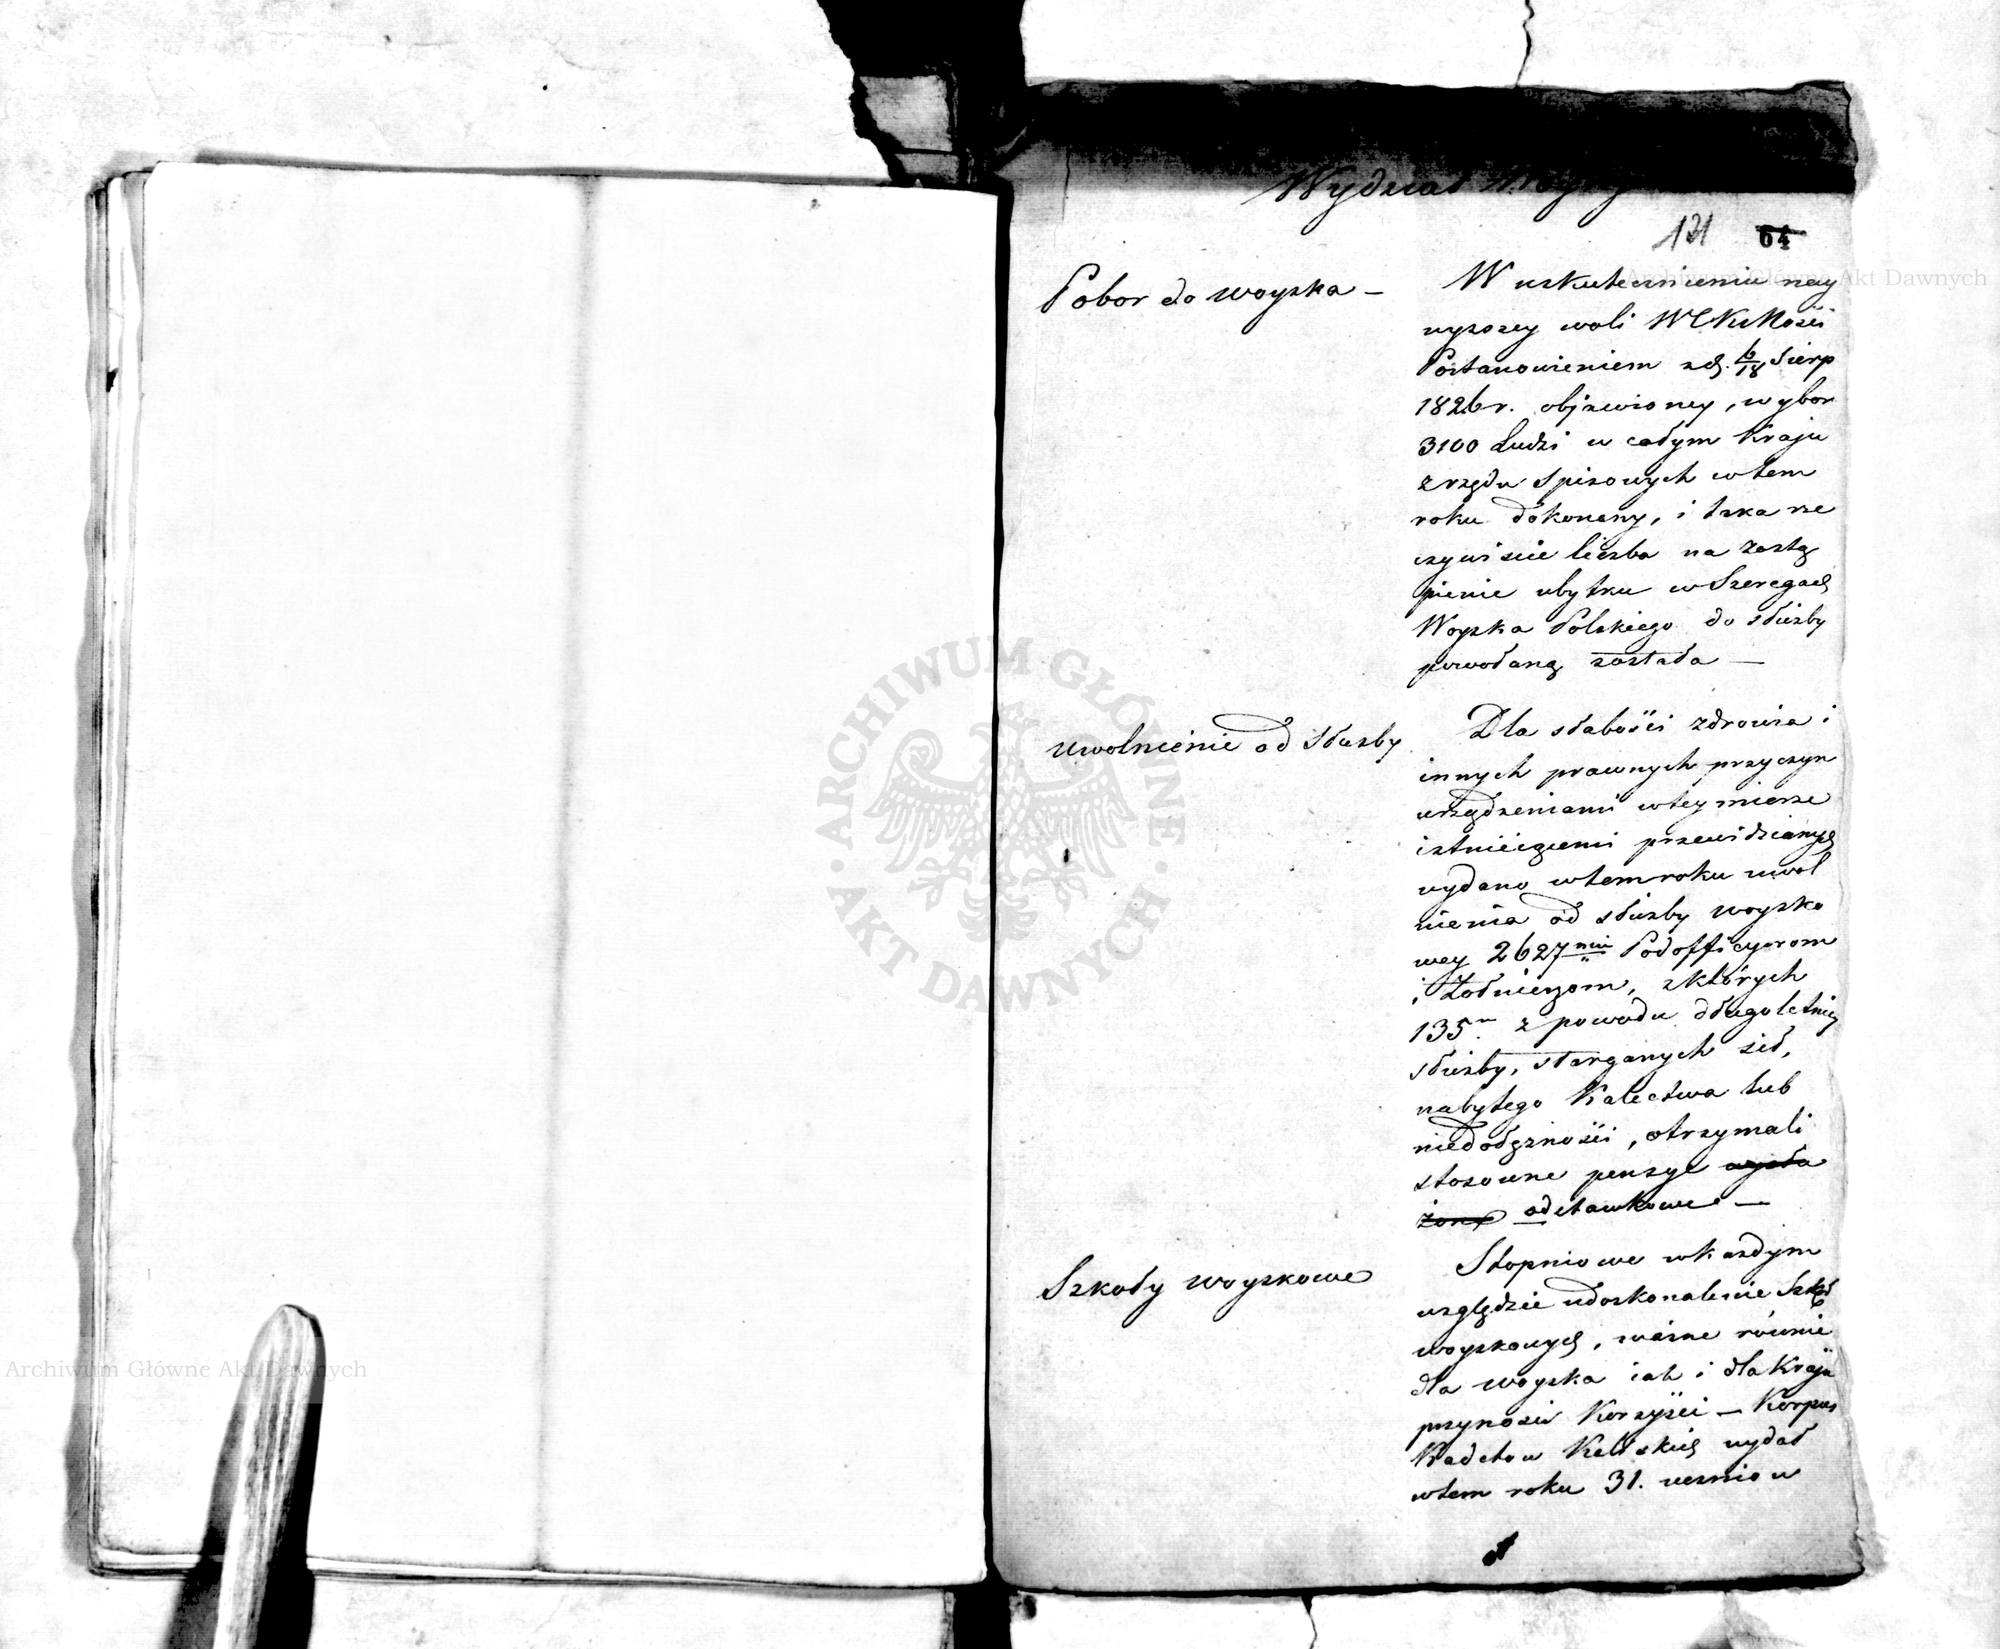 Wydział
121 64
Pobor do woyska —
W uskutecznieniu nay
wyzszey woli
Postanowieniem z d. 6/18 Sierp
1826 r. objawioney, wybor
3100 Ludzi w całym Kraju
z rzędu spisowych w tem
roku dokonany, i taka rze
czywiscie liczba na zastą
pienie ubytku w Szeregach
Woyska Polskiego do służby
powołaną została —
Uwolnienie od służby
Dla słabości zdrowia i
innych prawnych przyczyn
urządzeniami w tey mierze
istnieiącemi przewidzianych
wydano w tem roku uwol
nienia od służby woysko
wey 2627miu Podofficyerom
i Żołnierzom, z których
135u z powodu długoletniey
służby, starganych sił,
nabytego Kalectwa lub
niedołężności, otrzymali
stosowne pensye wysłu
żone odstawkowe —
Szkoły woyskowe
Stopniowe w każdym
względzie udoskonalenie Szkół
woyskowych, ważne równie
dla woyska iak i dla Kraju
przynosi Korzyści — Korpus
Kadetow Kaliskich wydał
w tem roku 31. uczniow
Archiwum Główne Akt Dawnych
ARCHIWUM GŁÓWNE · AKT DAWNYCH ·
Archiwum Główne Akt Dawnych